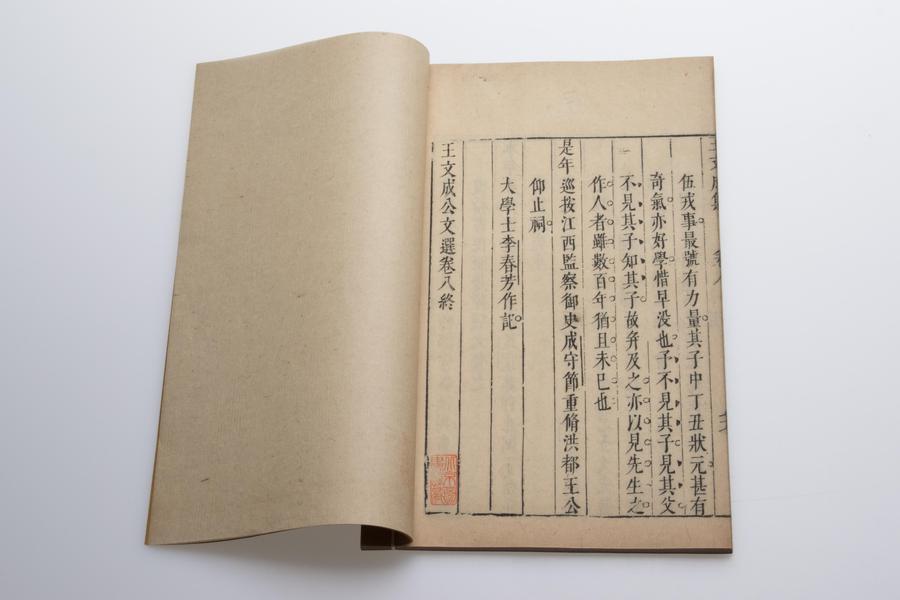 伍戎事最號有力量其子中丁丑狀元甚有
奇氣亦好學惜早没也予不見其子見其父
不見其子知其子故并及之亦以見先生之
作人者雖數百年猶且未已也
是年巡按江西監察御史成守節重脩洪都王公
仰止祠
大學士李春芳作記
王文成公文選卷八終